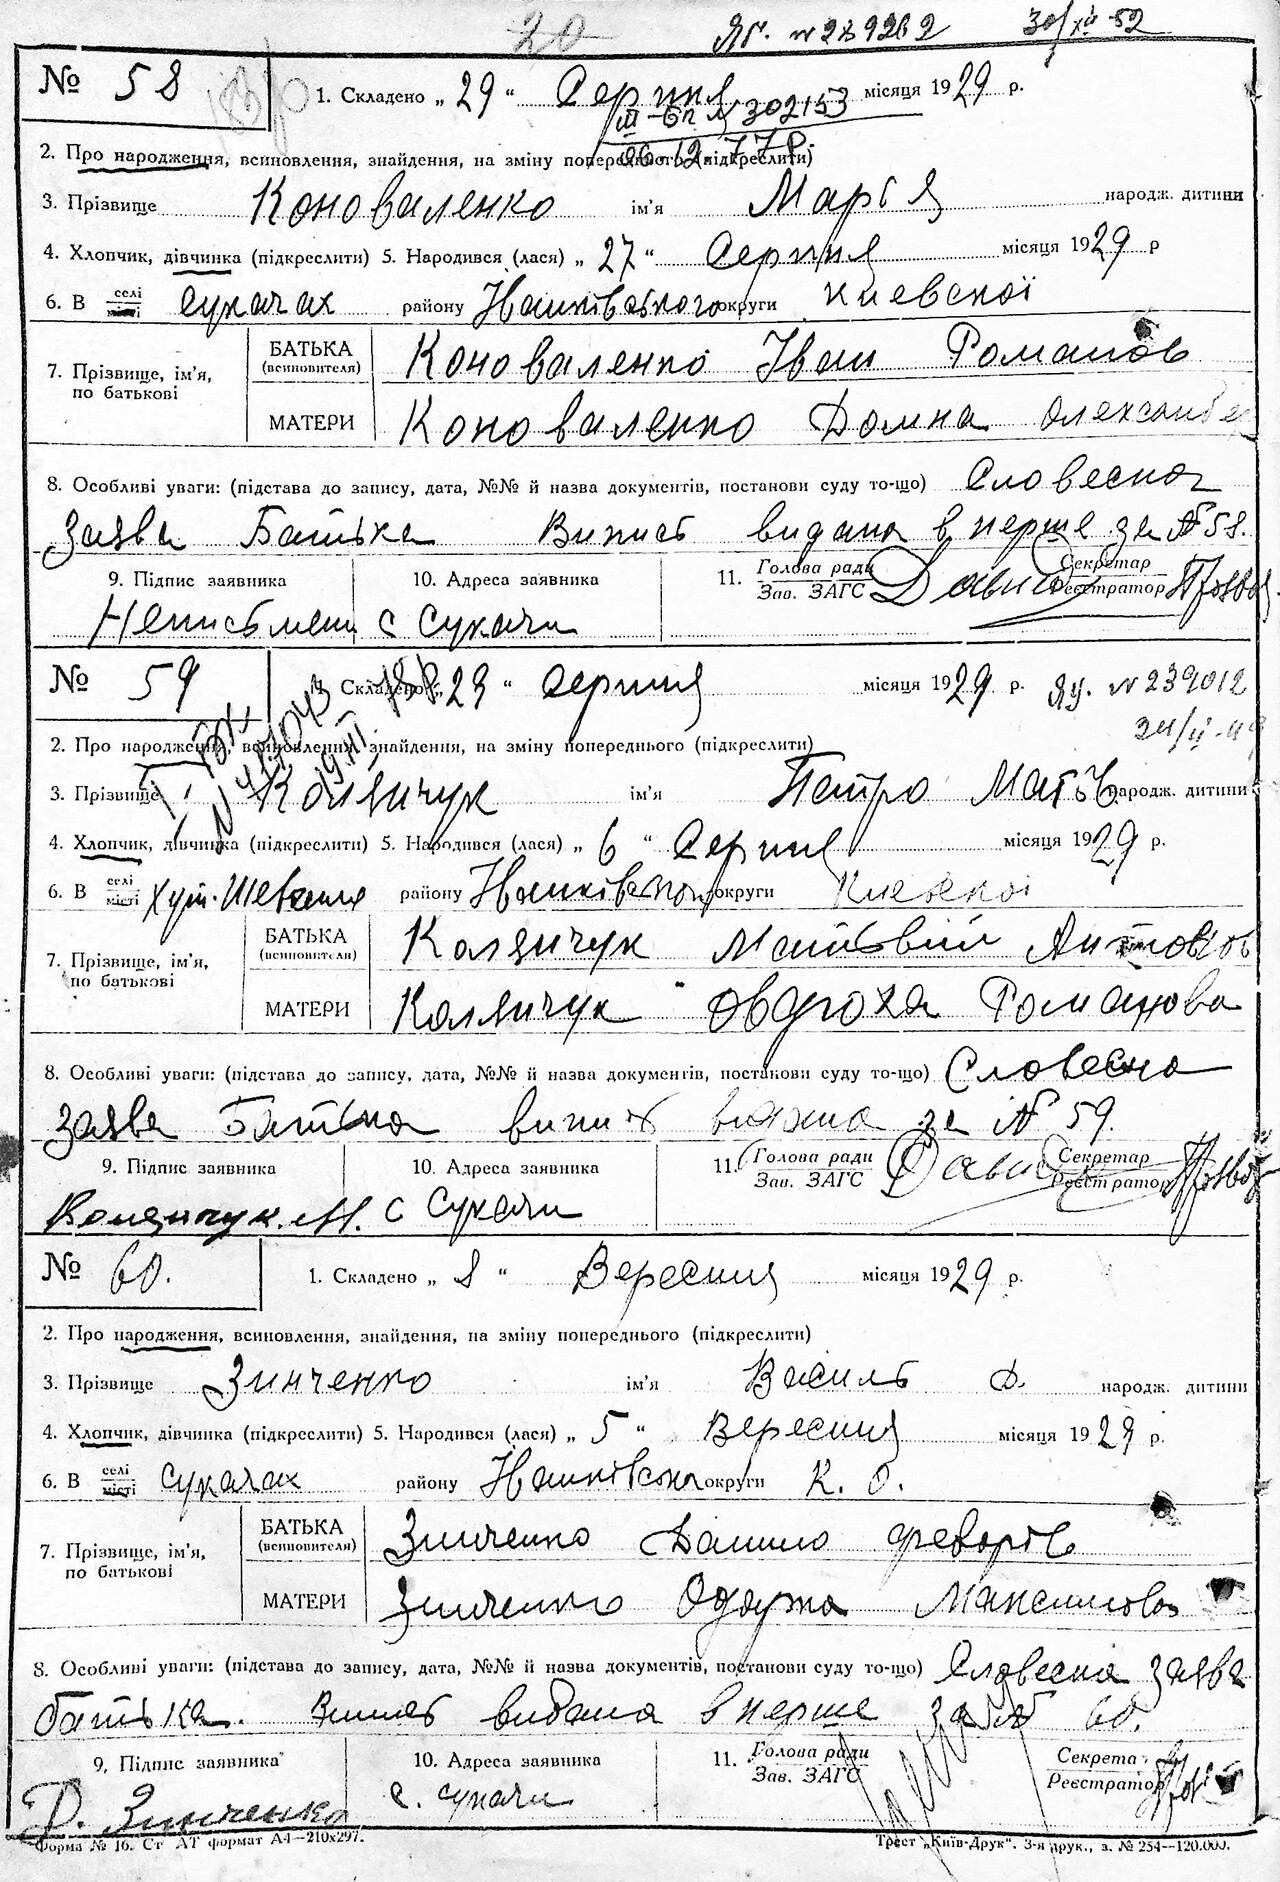 20 ЯГ. № 289262 30/XII-52
№ 58 1. Складено „ 29 “ Серпня місяця 1929 р.
III-БП № 302153
06.12.77р.
2. Про народження, всиновлення, знайдення, на зміну попереднього (підкреслити)
3. Прізвище Коноваленко ім'я Марія народж. дитини
4. Хлопчик, дівчинка (підкреслити) 5. Народився (лася) „ 27 “ Серпня місяця 1929 р
6. В селі місті Сукачах району Іванківського округи Киевскої
7. Прізвище, ім'я, по батькові БАТЬКА (всиновителя) Коноваленко Іван Романов
МАТЕРИ Коноваленко Домна Олександ
8. Особливі уваги: (підстава до запису, дата, №№ й назва документів, постанови суду то-що) Словесна
заява Батька Випись видана в перше за № 58.
9. Підпис заявника 10. Адреса заявника 11. Голова ради Зав. ЗАГС Секретар Реєстратор
Неписьмен с Сукачи
№ 59 1. Складено „ 29 “ Серпня місяця 1929 р. ЯЧ. № 239012
2. Про народження, всиновлення, знайдення, на зміну попереднього (підкреслити)
3. Прізвище Колянчук ім'я Петро Матв. народж. дитини
4. Хлопчик, дівчинка (підкреслити) 5. Народився (лася) „ 6 “ Серпня місяця 1929 р.
6. В селі місті Хут. району Іванківського округи Киевскої
7. Прізвище, ім'я, по батькові БАТЬКА (всиновителя) Колянчук Матьвій Антонов
МАТЕРИ Колянчук Овдюха Романова
8. Особливі уваги: (підстава до запису, дата, №№ й назва документів, постанови суду то-що) Словесна
заява Батька випись видана за № 59.
9. Підпис заявника 10. Адреса заявника 11. Голова ради Зав. ЗАГС Секретар Реєстратор
Колянчук М. с Сукачи
№ 60. 1. Складено „ 8 “ Вересня місяця 1929 р.
2. Про народження, всиновлення, знайдення, на зміну попереднього (підкреслити)
3. Прізвище Зинченко ім'я Василь Д. народж. дитини
4. Хлопчик, дівчинка (підкреслити) 5. Народився (лася) „ 5 “ Вересня місяця 1929 р.
6. В селі місті Сукачах району Іванківськ округи К. О.
7. Прізвище, ім'я, по батькові БАТЬКА (всиновителя) Зинченко Данило
МАТЕРИ Зинченко Одаржа Максимова
8. Особливі уваги: (підстава до запису, дата, №№ й назва документів, постанови суду то-що) Словесна заява
батька. Випись видана в перше за № 60.
9. Підпис заявника 10. Адреса заявника 11. Голова ради Зав. ЗАГС Секрета Реєстратор
Д. Зинченко с. Сукачи
Форма № 16. Ст АТ формат А4—210х297. Трест „Київ-Друк“. 3-я друк., з. № 254—120.000.